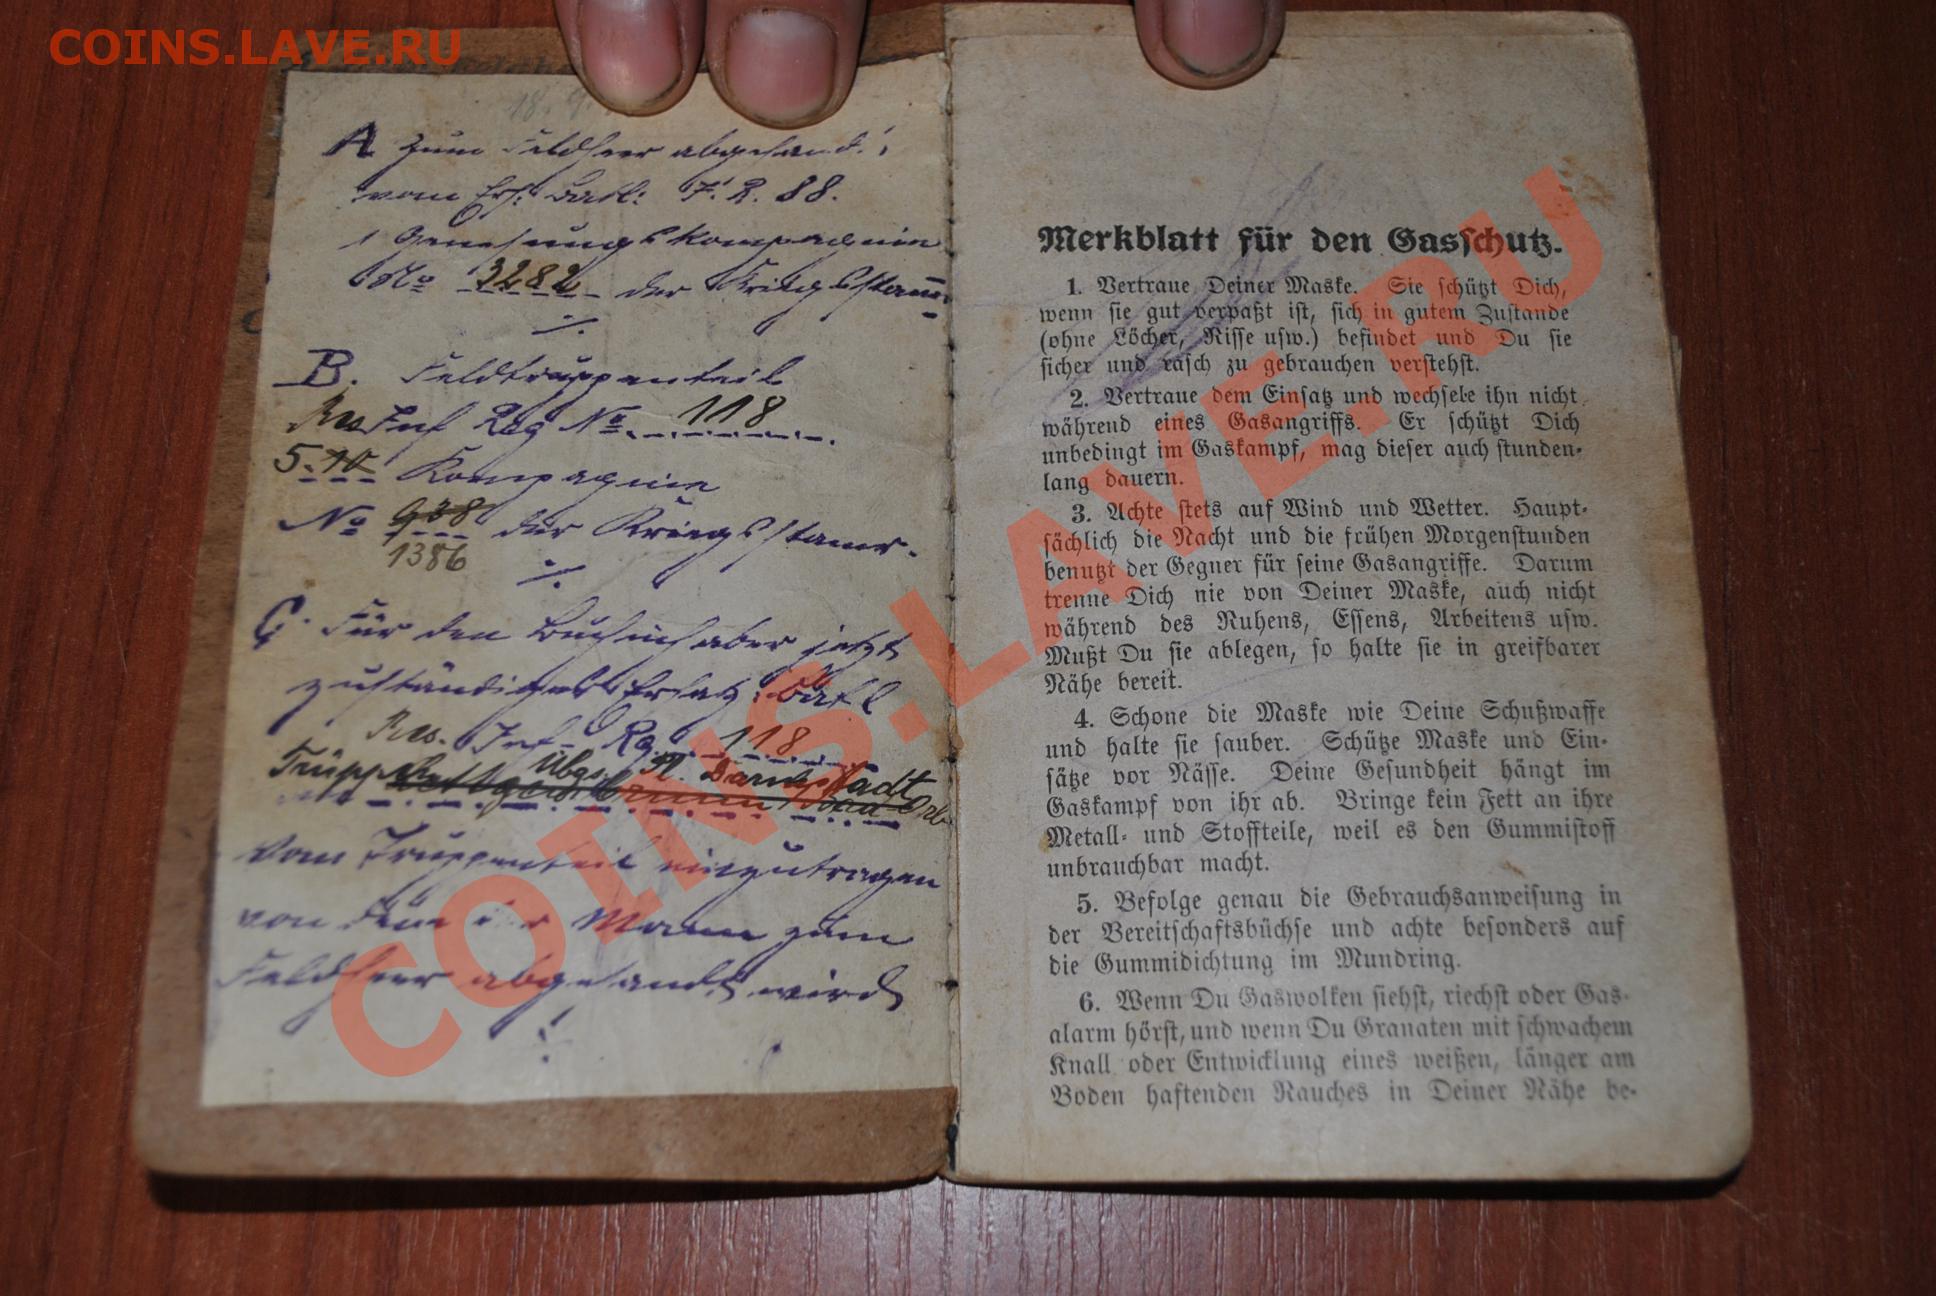 COINS.LAVE.RU
A zum Feldheer abgesandt:
vom Ers. Batl: I. R. 88.
1 Genesungskompagnie
No 3282 der Kriegsstamr.
B. Feldtruppenteil
Res Inf Reg No. 118
5. 10 Kompagnie
No 938 der Kriegsstamr.
1386
C. Für den Buchinhaber jetzt
zuständiges Ersatz Batl
Res. Inf- Rg. 118
Trüpp Übgs. Pl. Darmstadt
Orb
Vom Truppenteil einzutragen
von dem der Mann zum
Feldheer abgesandt wird
!
Merkblatt für den Gasschutz.
1. Vertraue Deiner Maske. Sie schützt Dich,
wenn sie gut verpaßt ist, sich in gutem Zustande
(ohne Löcher, Risse usw.) befindet und Du sie
sicher und rasch zu gebrauchen verstehst.
2. Vertraue dem Einsatz und wechsele ihn nicht
während eines Gasangriffs. Er schützt Dich
unbedingt im Gaskampf, mag dieser auch stunden-
lang dauern.
3. Achte stets auf Wind und Wetter. Haupt-
sächlich die Nacht und die frühen Morgenstunden
benutzt der Gegner für seine Gasangriffe. Darum
trenne Dich nie von Deiner Maske, auch nicht
während des Ruhens, Essens, Arbeitens usw.
Mußt Du sie ablegen, so halte sie in greifbarer
Nähe bereit.
4. Schone die Maske wie Deine Schußwaffe
und halte sie sauber. Schütze Maske und Ein-
sätze vor Nässe. Deine Gesundheit hängt im
Gaskampf von ihr ab. Bringe kein Fett an ihre
Metall- und Stoffteile, weil es den Gummistoff
unbrauchbar macht.
5. Befolge genau die Gebrauchsanweisung in
der Bereitschaftsbüchse und achte besonders auf
die Gummidichtung im Mundring.
6. Wenn Du Gaswolken siehst, riechst oder Gas-
alarm hörst, und wenn Du Granaten mit schwachem
Knall oder Entwicklung eines weißen, länger am
Boden haftenden Rauches in Deiner Nähe be-
COINS.LAVE.RU